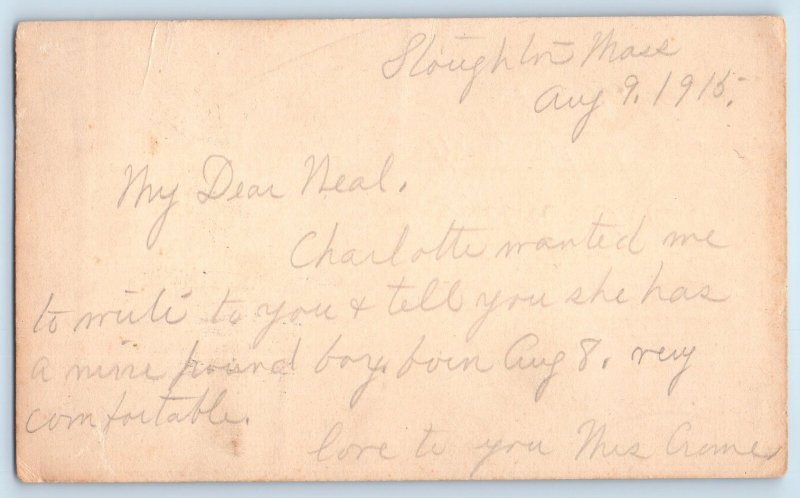 Stoughton Mass
Aug 9. 1915.
My Dear Neal.
Charlotte wanted me
to write to you & tell you she has
a nine pound boy. born Aug 8. very
comfortable.
love to you Mrs Crome